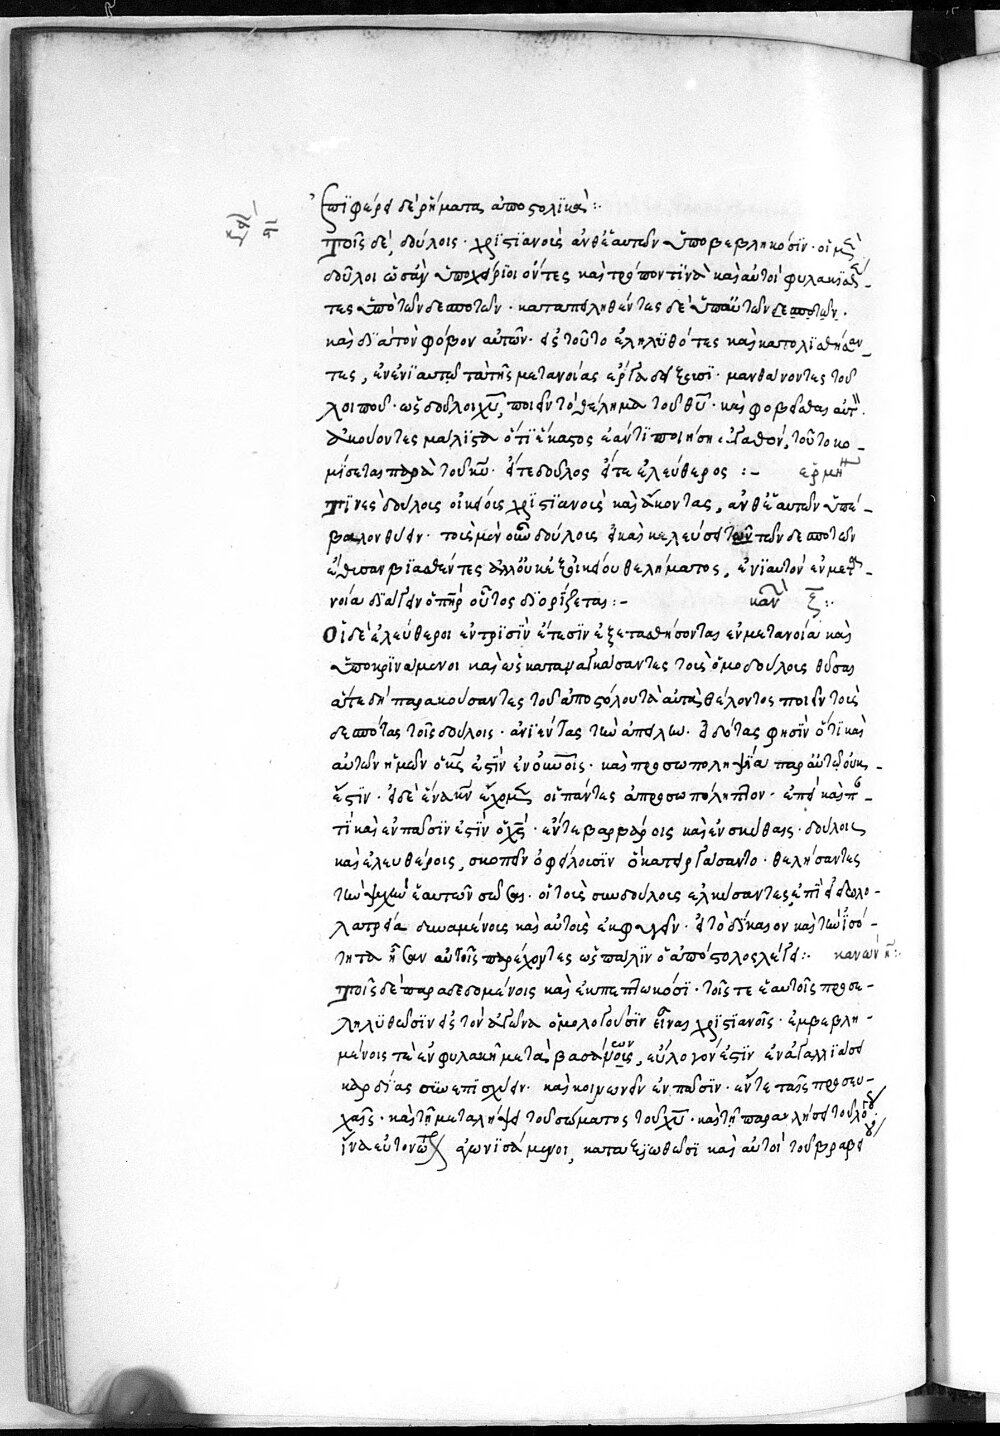 Ἐπιφέρει δὲ ῥήματα ἀποστολικά :·
Τοῖς δὲ δούλοις χριστιανοῖς ἀνθ' ἑαυτῶν ὑποβεβληκόσιν· οἱ μὲν
δοῦλοι ὡσὰν ὑποχείριοι ὄντες καὶ τρόπον τινὰ καὶ αὐτοὶ φυλακισθέν_
τες ὑπὸ τῶν δεσποτῶν· καταπειληθέντες δὲ ὑπ' αὐτῶν δεσποτῶν·
καὶ διὰ τὸν φόβον αὐτῶν· εἰς τοῦτο ἐληλυθότες καὶ κατολισθήσαν_
τες, ἐν ἐνιαυτῷ τὰ τῆς μετανοίας ἔργα δείξουσι· μανθάνοντες τοῦ
λοιποῦ· ὡς δοῦλοι χυ, ποιεῖν τὸ θέλημα τοῦ θυ· καὶ φοβεῖσθαι αὐτόν·
ἀκούοντες μάλιστα ὅτι ἕκαστος ἐάν τι ποιήσῃ ἀγαθόν, τοῦτο κο_
μίσεται παρὰ τοῦ κυ· εἴτε δοῦλος εἴτε ἐλεύθερος :- ἑρμη
Τινὲς δούλοις οἰκείοις χριστιανοῖς καὶ ἄκοντας, ἀνθ' ἑαυτῶν ὑπέ_
βαλον θύειν· τοὺς μὲν οὖν δούλοις εἰ καὶ κελεύσει τῶν δεσποτῶν
ἔθυσαν βιασθέντες ἀλλ' οὐκ ἐξ οἰκείου θελήματος, ἐνιαυτὸν ἐν μετα_
νοία διάγειν ὁ πηρ οὗτος διορίζεται :- κανὼν ξ :·
Οἱ δὲ ἐλεύθεροι ἐν τρισὶν ἔτεσιν ἐξετασθήσονται ἐν μετανοία καὶ
ὑποκρινάμενοι καὶ ὡς καταναγκάσαντες τοὺς ὁμοδούλοις θῦσαι
ἅτε δὴ παρακούσαντες τοῦ ἀποστόλου τὰ αὐτὰ θέλοντος ποιεῖν τοὺς
δεσπότας τοῖς δούλοις· ἀνιέντας τὴν ἀπειλήν· εἰδότας φησὶν ὅτι καὶ
αὐτῶν ἡμῶν ὁ κς ἐστὶν ἐν οὐνοῖς· καὶ προσωποληψία παρ' αὐτῷ οὐκ_
ἔστιν· εἰ δὲ ἕνα κν ἔχομεν οἱ πάντες ἀπροσωπόληπτον· ἐπεὶ καὶ πάν_
τι καὶ ἐν πᾶσίν ἐστιν ὁ χς· ἔν τε βαρβάροις καὶ ἐν σκύθαις· δούλοις
καὶ ἐλευθέροις, σκοπεῖν ὀφείλουσιν ὃ κατειργάσαντο· θελήσαντες
τὴν ψυχὴν ἑαυτῶν σῶσαι· οἱ τοὺς συνδούλοις ἑλκύσαντες ἐπὶ εἰδωλο-
λατρεία δυναμένοις καὶ αὐτοὺς ἐκφυγεῖν· εἰ τὸ δίκαιον καὶ τὴν ἰσό-
τητα ἦσαν αὐτοῖς παρέχοντες ὡς πάλιν ὁ ἀπόστολος λέγει :· κανών η :·
Τοῖς δὲ παραδεδομένοις καὶ ἐκπεπτωκόσι· τοῖς τε ἑαυτοῖς προσε-
ληλυθῶσιν εἰς τὸν ἀγῶνα ὁμολογοῦσιν εἶναι χριστιανοῖς· ἐμβεβλη-
μένοις τὲ ἐν φυλακῆ μετὰ βασάνοις, εὔλογόν ἐστιν ἐν ἀγαλλιάσει
καρδίας συνεπισχύειν· καὶ κοινωνεῖν ἐν πᾶσιν· ἔν τε ταῖς προσευ-
χαῖς· καὶ τῆ μεταλήψει τοῦ σώματος τοῦ χυ· καὶ τῆ παρακλήσει τοῦ λόγου·
ἵνα εὐτονώτερον ἀγωνισάμενοι, καταξιωθῶσι καὶ αὐτοὶ τοῦ βραβεί